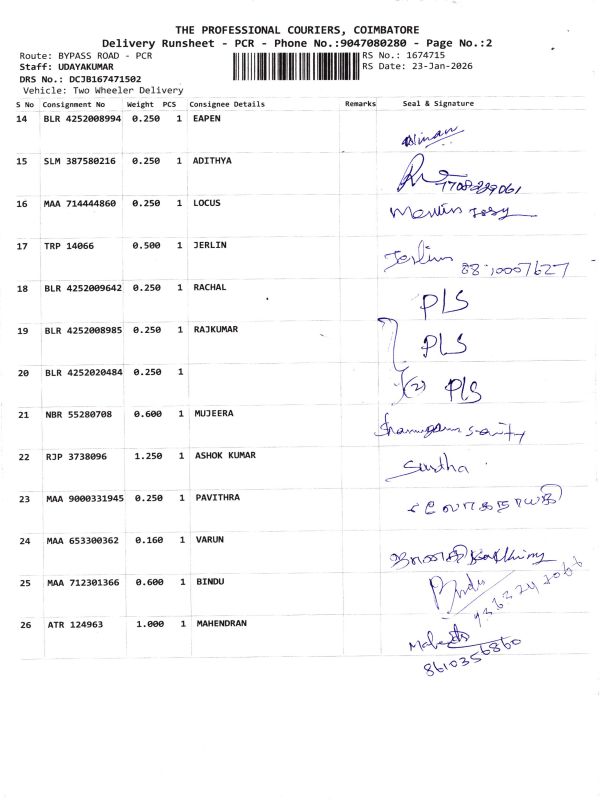 THE PROFESSIONAL COURIERS, COIMBATORE
Delivery Runsheet - PCR - Phone No.:9047080280 - Page No.:2
Route: BYPASS ROAD - PCR
RS No.: 1674715
Staff: UDAYAKUMAR
RS Date: 23-Jan-2026
DRS No.: DCJB167471502
Vehicle: Two Wheeler Delivery
S No Consignment No Weight PCS Consignee Details Remarks Seal & Signature
14 BLR 4252008994 0.250 1 EAPEN
15 SLM 387580216 0.250 1 ADITHYA
16 MAA 714444860 0.250 1 LOCUS
17 TRP 14066 0.500 1 JERLIN Jerlin
18 BLR 4252009642 0.250 1 RACHAL PLS
19 BLR 4252008985 0.250 1 RAJKUMAR PLS
20 BLR 4252020484 0.250 1 (2) PLS
21 NBR 55280708 0.600 1 MUJEERA
22 RJP 3738096 1.250 1 ASHOK KUMAR
23 MAA 9000331945 0.250 1 PAVITHRA
24 MAA 653300362 0.160 1 VARUN
25 MAA 712301366 0.600 1 BINDU Bindu
26 ATR 124963 1.000 1 MAHENDRAN
8610356860